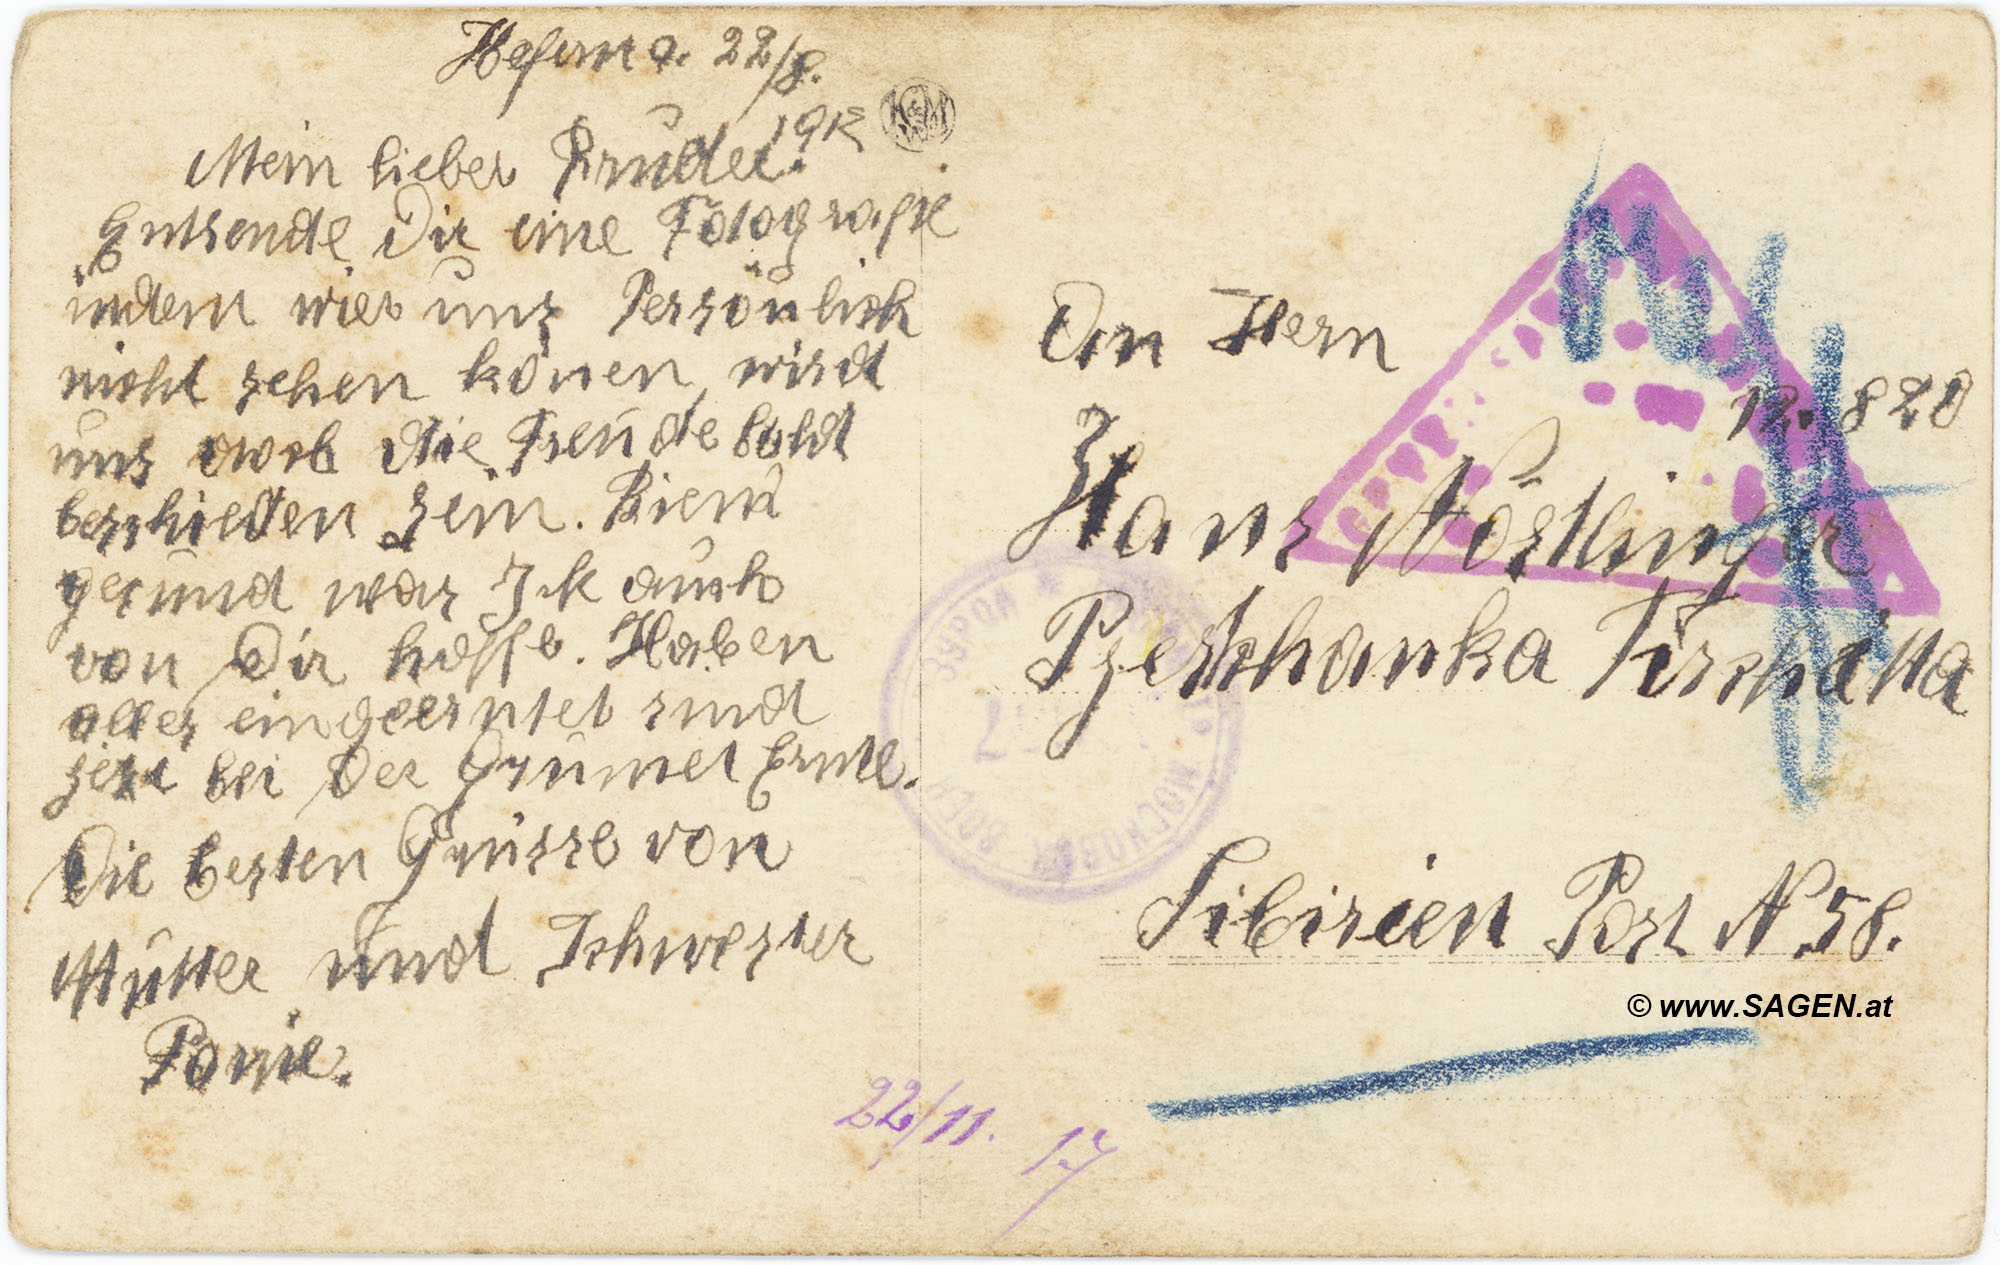 22/8.
Mein lieber Bruder.
Entsende Dir eine Fotografie
indem wier uns Persönlich
nicht sehen könen, wirdt
uns aweb die Freude baldt
beschieden sein. Bien
gesund was Ich auch
von Dir hoffe. Haben
alles eingeerntet sind
jezt bei der Grumet Ernte.
Die besten Grüsse von
Mutter und Schwester
An Hern
R. 828
Hans Nöstlinger
Pjeschanka Tirschitta
Sibirien Post N 58.
© www.SAGEN.at
22/11. 17